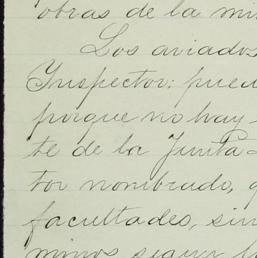 obras de la mi
Los aviados
Inspector: pue
porque no hay
te de la Junta
tor nombrado,
facultades, sin
minos seguir